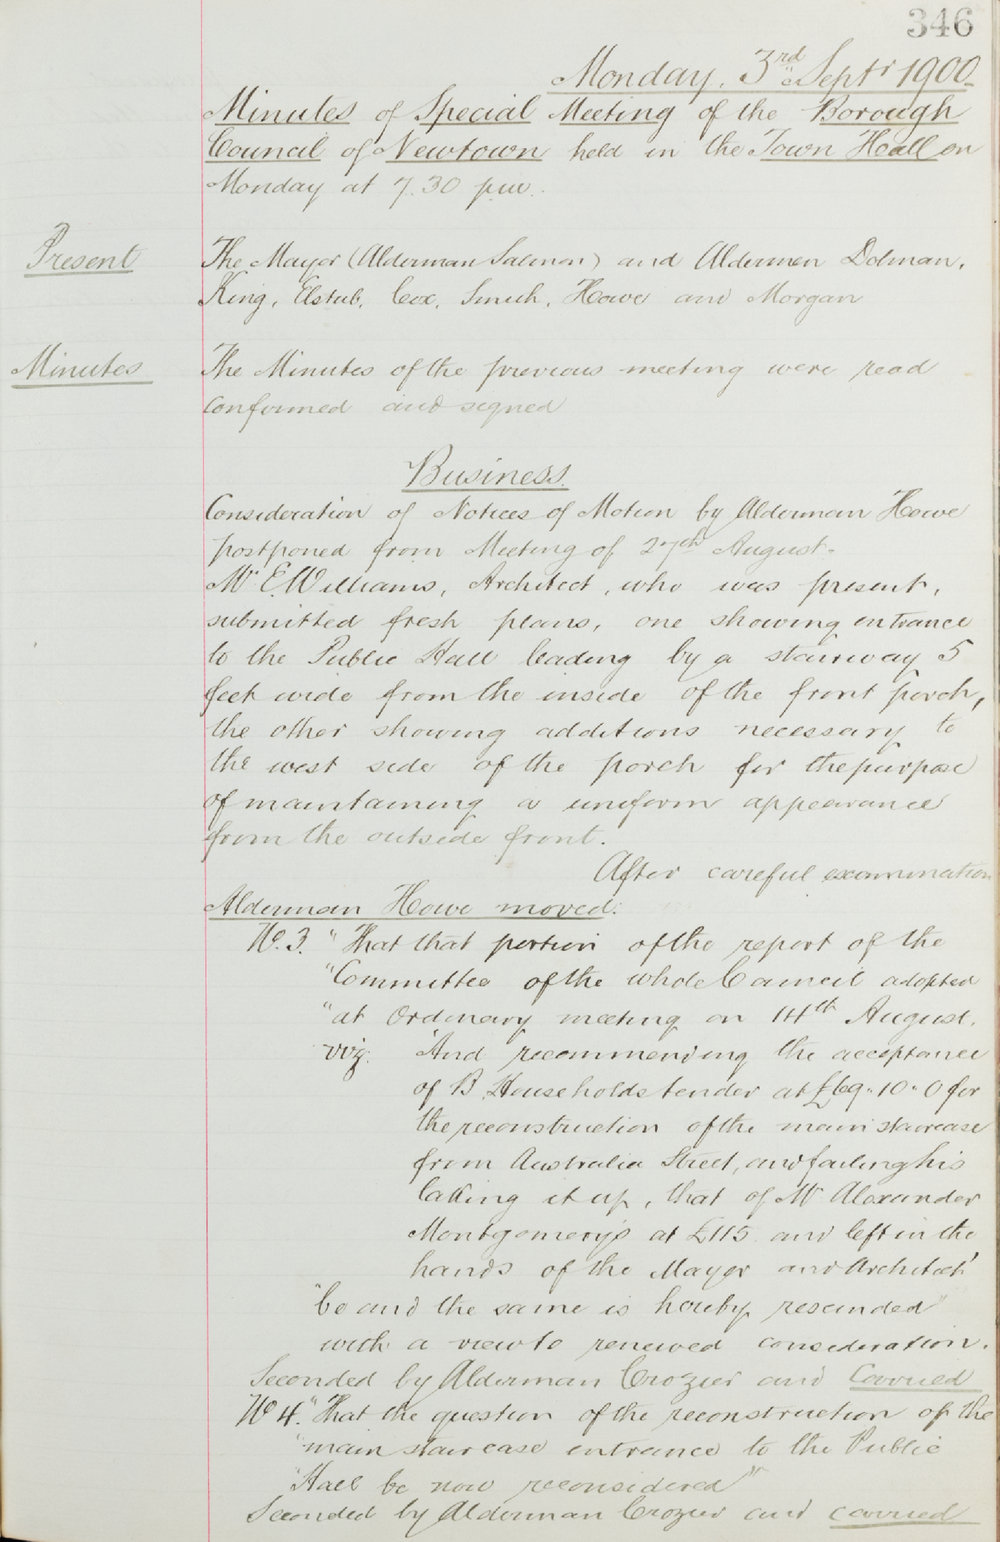 346
Monday. 3rd Septr 1900.
Minutes of Special Meeting of the Borough
Council of Newtown held in the Town Hall on
Monday at 7.30 p.m.
Present
The Mayor (Alderman Salmon) and Aldermen Dolman,
King, Elstub, Cox, Smith, Howe and Morgan
Minutes
The Minutes of the previous meeting were read
confirmed and signed
Business.
Consideration of Notices of Motion by Alderman Howe
postponed from Meeting of 27th August.
Mr E. Williams, Architect, who was present,
submitted fresh plans, one showing entrance
to the Public Hall leading by a stairway 5
feet wide from the inside of the front porch,
the other showing additions necessary to
the west side of the porch for the purpose
of maintaining a uniform appearance
from the outside front.
After careful examination
Alderman Howe moved:
No. 3. "That that portion of the report of the
"Committee of the whole Council adopted
"at Ordinary meeting on 14th August.
viz. 'And recommending the acceptance
of B. Households tender at £69.10.0 for
the reconstruction of the main staircase
from Australia Street, and failing his
taking it up, that of Mr Alexander
Montgomery's at £115 and left in the
hands of the Mayor and Architect'
"be and the same is hereby rescinded"
with a view to renewed consideration.
Seconded by Alderman Crozier and Carried
No 4. "That the question of the reconstruction of the
"main staircase entrance to the Public
"Hall be now reconsidered"
Seconded by Alderman Crozier and carried